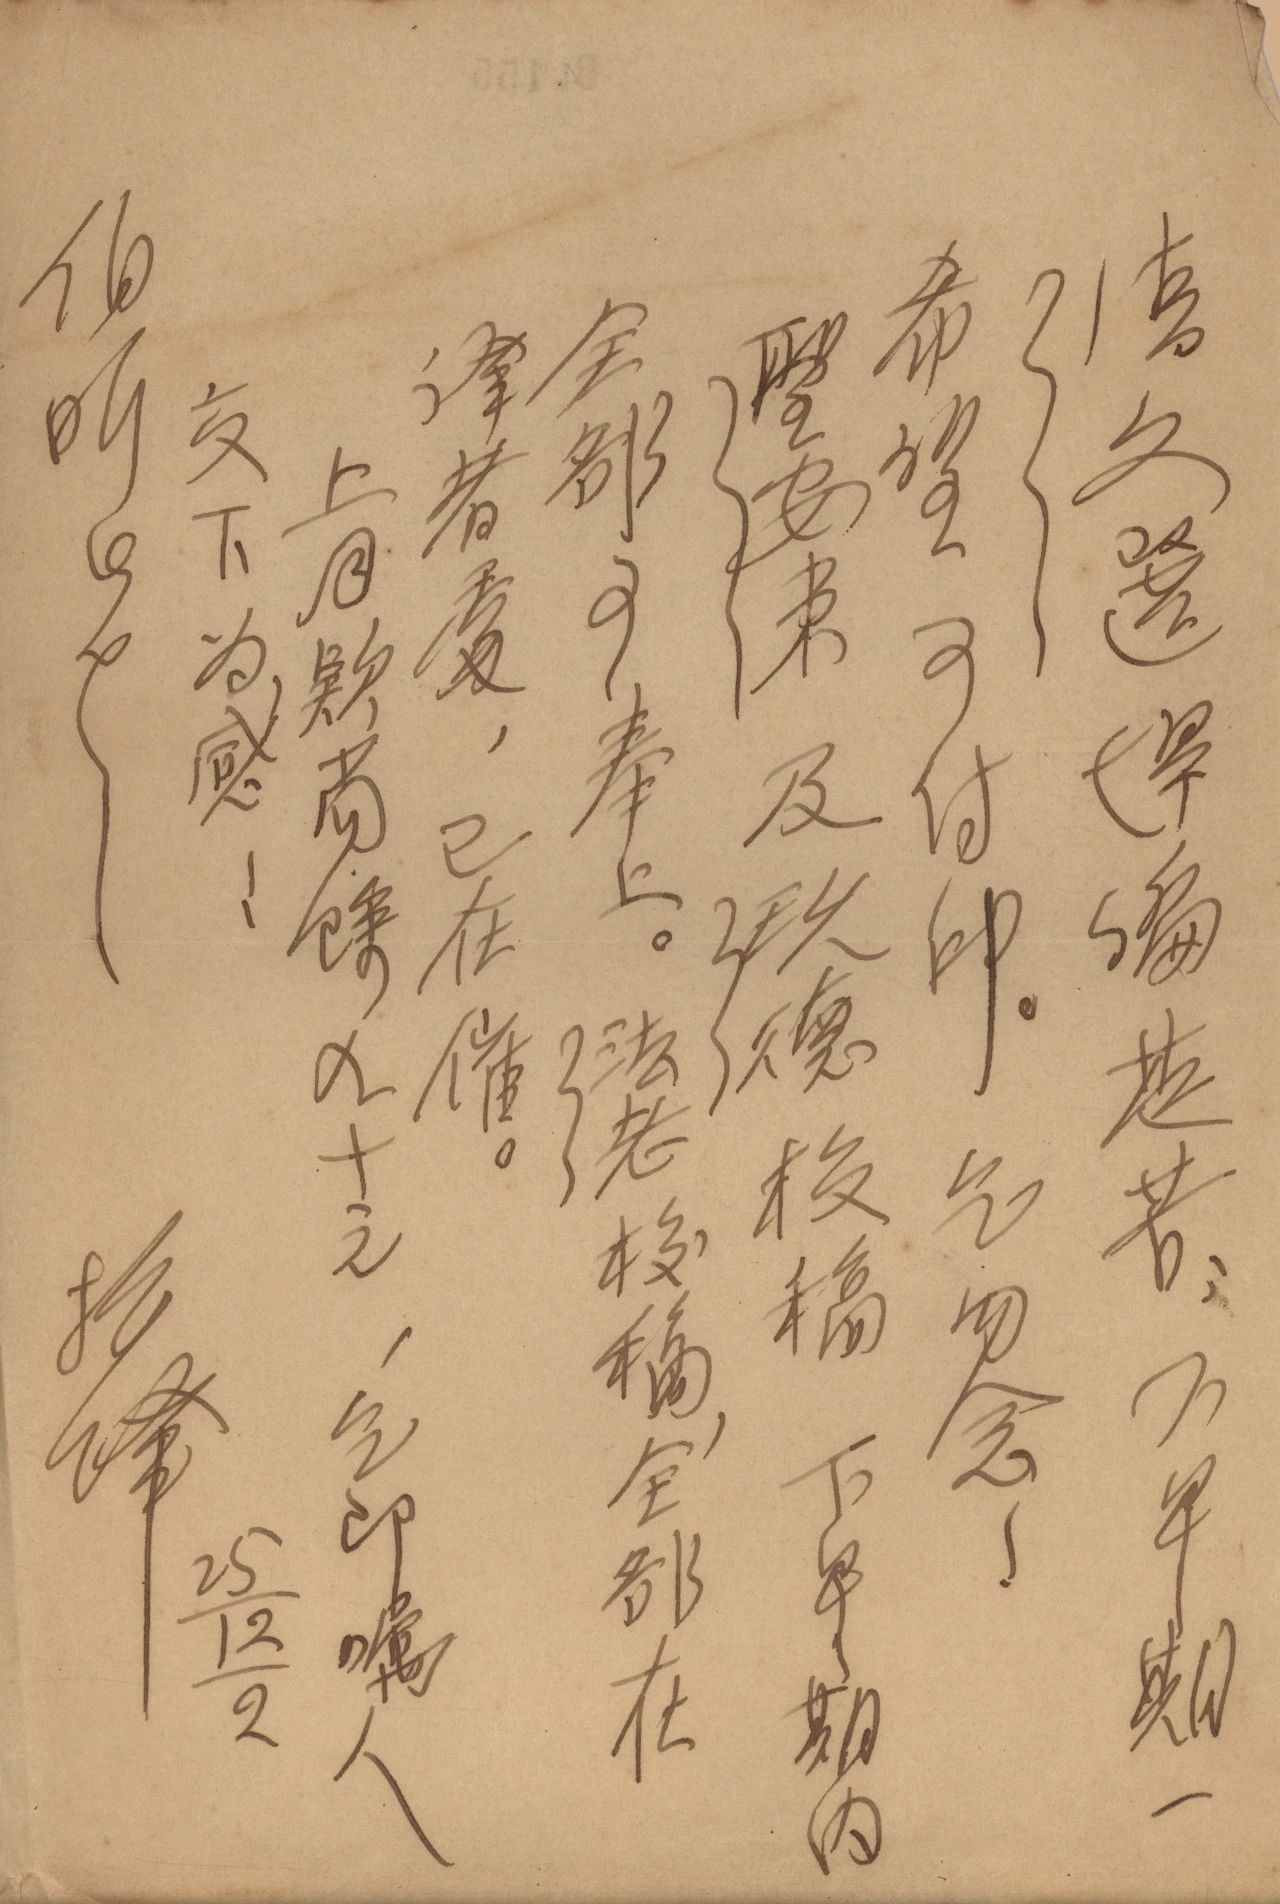 清文選趕編甚苦；下星期一
希望可付印。乞勿念！
聖安東及玖德校稿下星期內
全部可奉上。法老校稿，全部在
譯者處，已在催。
上月款尚餘九十元，乞即囑人
交下為感！
伯昕兄
振鐸
25/12/2